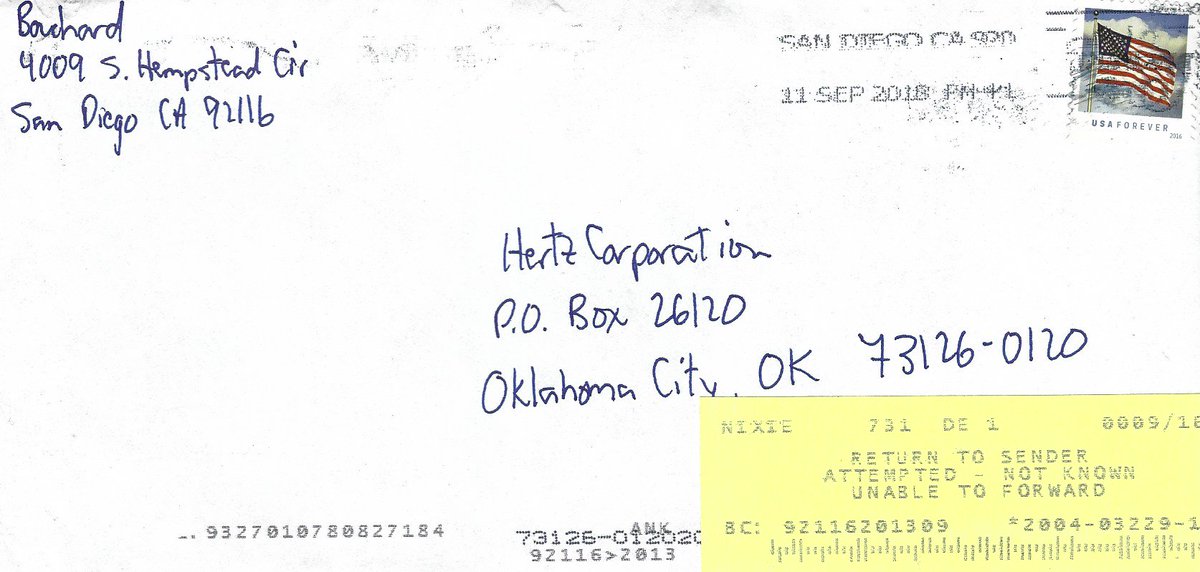 Bouchard
4009 S. Hempstead Cir
San Diego CA 92116
SAN DIEGO CA 920
11 SEP 2018 PM 4 L
USA FOREVER
2016
Hertz Corporation
P.O. Box 26120
Oklahoma City, OK 73126-0120
NIXIE 731 DE 1 0009/16
RETURN TO SENDER
ATTEMPTED - NOT KNOWN
UNABLE TO FORWARD
BC: 92116201309 *2004-03229-1
.. 9327010780827184
ANK
73126-012020
92116>2013